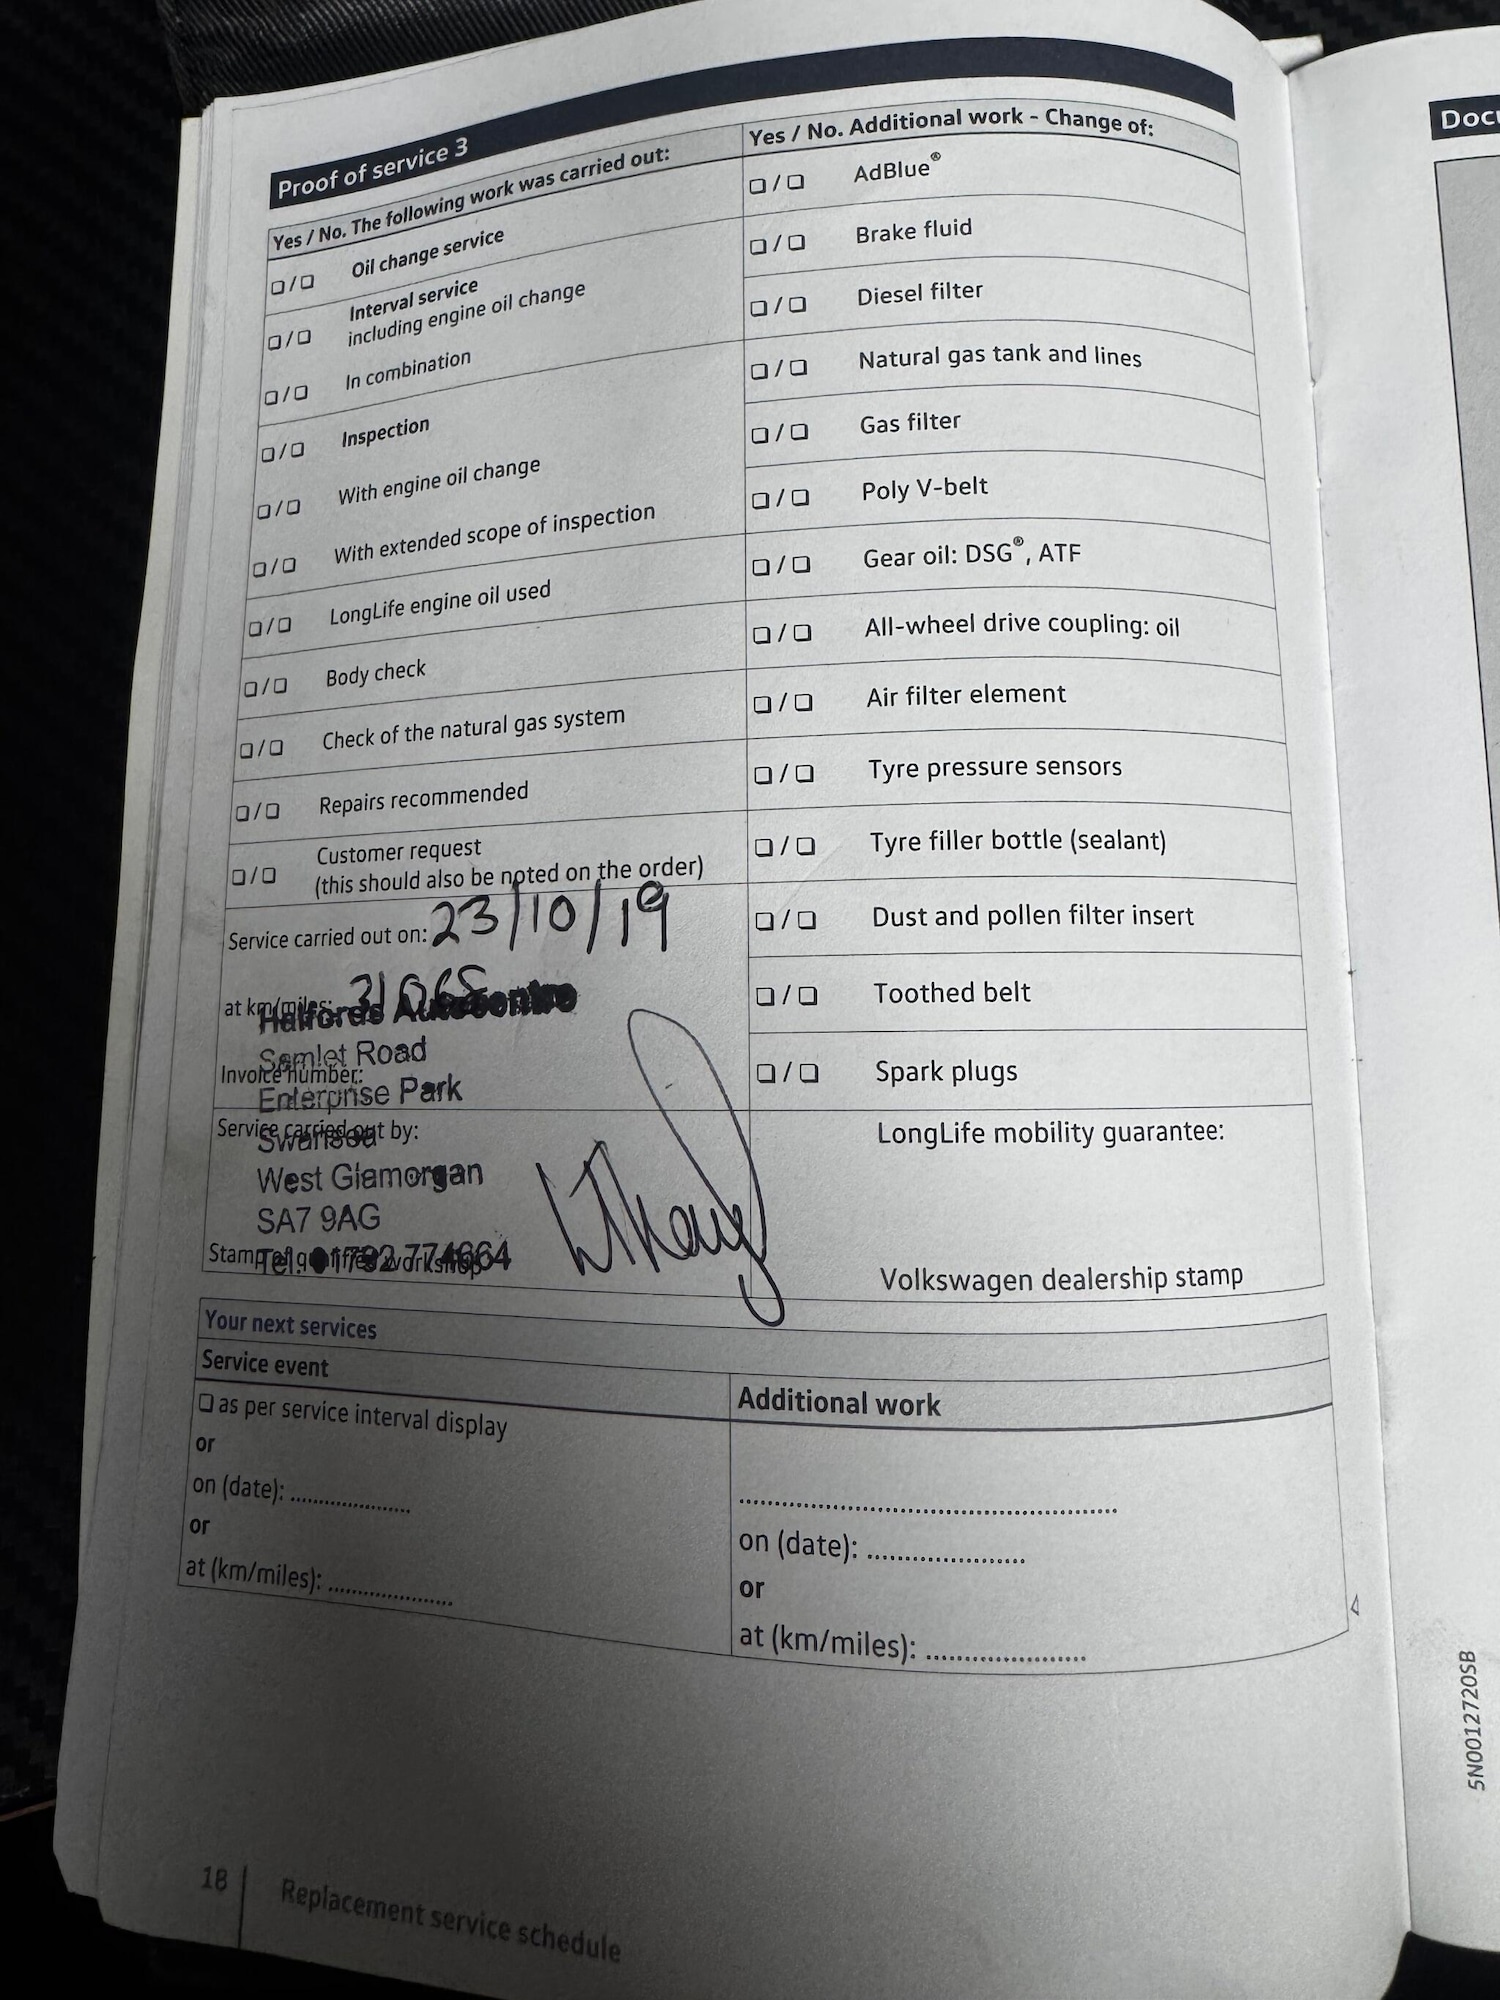 Proof of service 3
Yes / No. The following work was carried out:
❑ / ❑ Oil change service
❑ / ❑ Interval service
including engine oil change
❑ / ❑ In combination
❑ / ❑ Inspection
❑ / ❑ With engine oil change
❑ / ❑ With extended scope of inspection
❑ / ❑ LongLife engine oil used
❑ / ❑ Body check
❑ / ❑ Check of the natural gas system
❑ / ❑ Repairs recommended
❑ / ❑ Customer request
(this should also be noted on the order)
Service carried out on: 23/10/19
at km/miles:
Halfords Autocentre
Samlet Road
Invoice number:
Enterprise Park
Service carried out by:
Swansea
West Glamorgan
SA7 9AG
Stamp of qualified workshop
Tel: 01792 774664
Yes / No. Additional work - Change of:
❑ / ❑ AdBlue®
❑ / ❑ Brake fluid
❑ / ❑ Diesel filter
❑ / ❑ Natural gas tank and lines
❑ / ❑ Gas filter
❑ / ❑ Poly V-belt
❑ / ❑ Gear oil: DSG®, ATF
❑ / ❑ All-wheel drive coupling: oil
❑ / ❑ Air filter element
❑ / ❑ Tyre pressure sensors
❑ / ❑ Tyre filler bottle (sealant)
❑ / ❑ Dust and pollen filter insert
❑ / ❑ Toothed belt
❑ / ❑ Spark plugs
LongLife mobility guarantee:
Volkswagen dealership stamp
Your next services
Service event
❑ as per service interval display
or
on (date): .....................
or
at (km/miles): .....................
Additional work
.....................................................
on (date): ......................
or
at (km/miles): ......................
18 Replacement service schedule
5N0012720SB